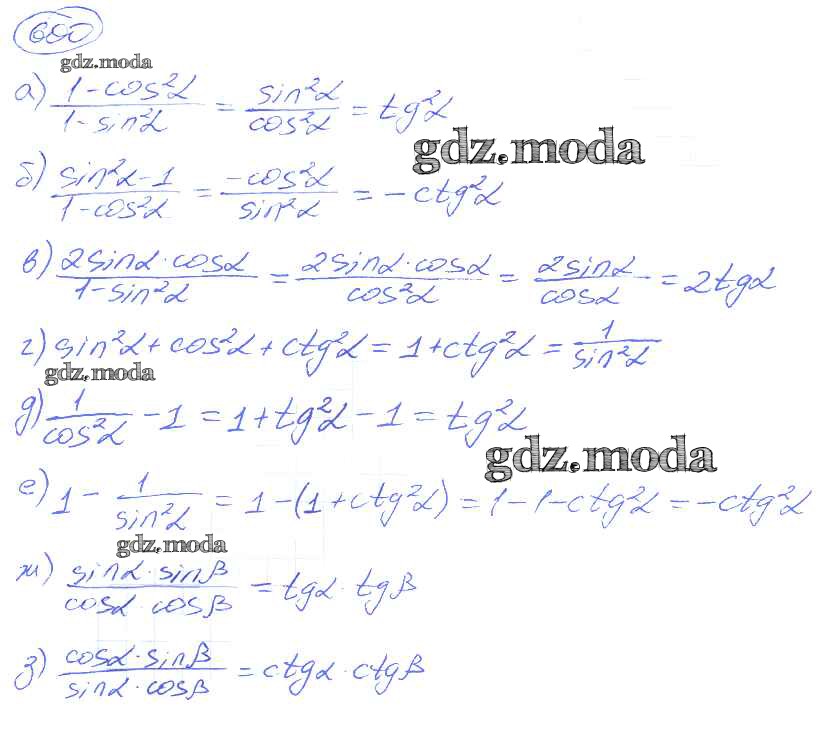 680
gdz.moda
а) (1 - cos²α)/(1 - sin²α) = sin²α/cos²α = tg²α
gdz.moda
б) (sin²α - 1)/(1 - cos²α) = -cos²α/sin²α = -ctg²α
в) (2sinα · cosα)/(1 - sin²α) = (2sinα · cosα)/cos²α = 2sinα/cosα = 2tgα
г) sin²α + cos²α + ctg²α = 1 + ctg²α = 1/sin²α
gdz.moda
д) 1/cos²α - 1 = 1 + tg²α - 1 = tg²α
gdz.moda
е) 1 - 1/sin²α = 1 - (1 + ctg²α) = 1 - 1 - ctg²α = -ctg²α
gdz.moda
ж) (sinα · sinβ)/(cosα · cosβ) = tgα · tgβ
з) (cosα · sinβ)/(sinα · cosβ) = ctgα · ctgβ